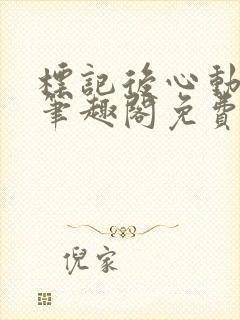 標記後心動
筆趣閣免費
倪家